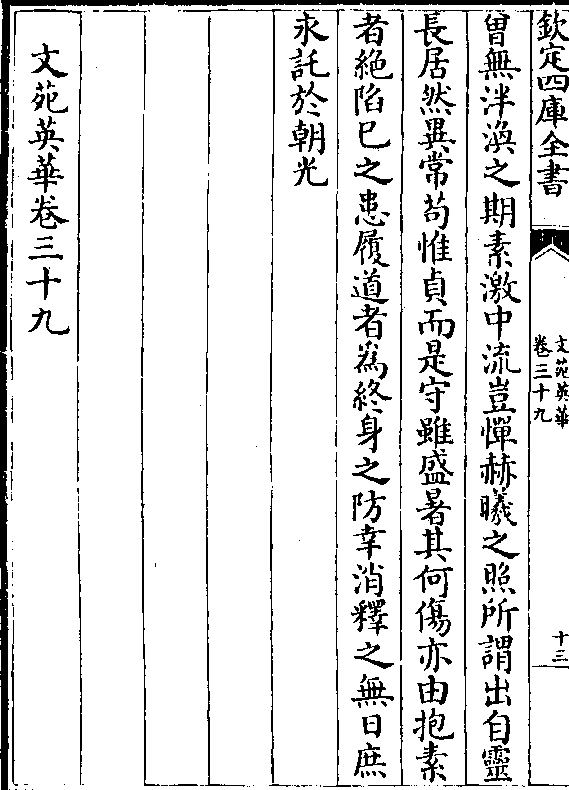 欽定四庫全書
文苑英華
卷三十九
十三
曽無泮渙之期素激中流豈憚赫曦之照所謂出自靈
長居然異常苟惟貞而是守雖盛暑其何傷亦由抱素
者絶陷已之患履道者爲終身之防幸消釋之無日庶
永託於朝光
文苑英華卷三十九